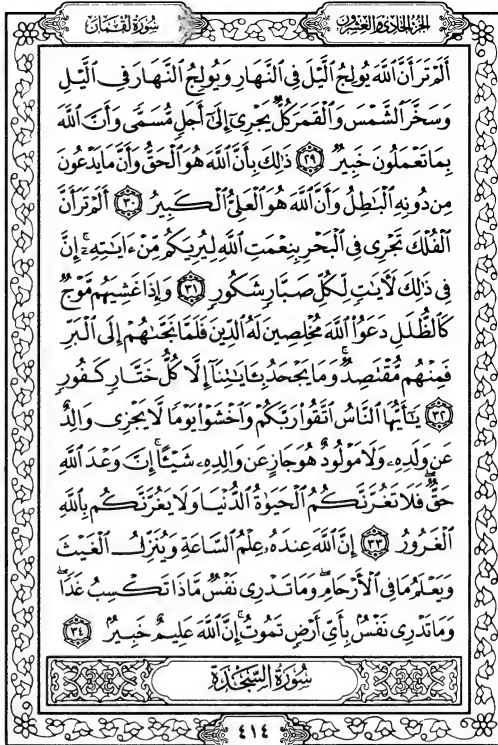 سُورَةُ لُقۡمَانَ
الجُزءُ الحَادِي وَالعِشۡرُونَ
أَلَمۡ تَرَ أَنَّ ٱللَّهَ يُولِجُ ٱلَّيۡلَ فِي ٱلنَّهَارِ وَيُولِجُ ٱلنَّهَارَ فِي ٱلَّيۡلِ
وَسَخَّرَ ٱلشَّمۡسَ وَٱلۡقَمَرَ كُلٌّ يَجۡرِيٓ إِلَىٰٓ أَجَلٖ مُّسَمّٗى وَأَنَّ ٱللَّهَ
بِمَا تَعۡمَلُونَ خَبِيرٞ ٢٩ ذَٰلِكَ بِأَنَّ ٱللَّهَ هُوَ ٱلۡحَقُّ وَأَنَّ مَا يَدۡعُونَ
مِن دُونِهِ ٱلۡبَٰطِلُ وَأَنَّ ٱللَّهَ هُوَ ٱلۡعَلِيُّ ٱلۡكَبِيرُ ٣٠ أَلَمۡ تَرَ أَنَّ
ٱلۡفُلۡكَ تَجۡرِي فِي ٱلۡبَحۡرِ بِنِعۡمَتِ ٱللَّهِ لِيُرِيَكُم مِّنۡ ءَايَٰتِهِۦٓۚ إِنَّ
فِي ذَٰلِكَ لَأٓيَٰتٖ لِّكُلِّ صَبَّارٖ شَكُورٖ ٣١ وَإِذَا غَشِيَهُم مَّوۡجٞ
كَٱلظُّلَلِ دَعَوُاْ ٱللَّهَ مُخۡلِصِينَ لَهُ ٱلدِّينَ فَلَمَّا نَجَّىٰهُمۡ إِلَى ٱلۡبَرِّ
فَمِنۡهُم مُّقۡتَصِدٞۚ وَمَا يَجۡحَدُ بِـَٔايَٰتِنَآ إِلَّا كُلُّ خَتَّارٖ كَفُورٖ
٣٢ يَٰٓأَيُّهَا ٱلنَّاسُ ٱتَّقُواْ رَبَّكُمۡ وَٱخۡشَوۡاْ يَوۡمٗا لَّا يَجۡزِي وَالِدٌ
عَن وَلَدِهِۦ وَلَا مَوۡلُودٌ هُوَ جَازٍ عَن وَالِدِهِۦ شَيۡـًٔاۚ إِنَّ وَعۡدَ ٱللَّهِ
حَقّٞۖ فَلَا تَغُرَّنَّكُمُ ٱلۡحَيَوٰةُ ٱلدُّنۡيَا وَلَا يَغُرَّنَّكُم بِٱللَّهِ
ٱلۡغَرُورُ ٣٣ إِنَّ ٱللَّهَ عِندَهُۥ عِلۡمُ ٱلسَّاعَةِ وَيُنَزِّلُ ٱلۡغَيۡثَ
وَيَعۡلَمُ مَا فِي ٱلۡأَرۡحَامِۖ وَمَا تَدۡرِي نَفۡسٞ مَّاذَا تَكۡسِبُ غَدٗاۖ
وَمَا تَدۡرِي نَفۡسُۢ بِأَيِّ أَرۡضٖ تَمُوتُۚ إِنَّ ٱللَّهَ عَلِيمٌ خَبِيرُۢ ٣٤
سُورَةُ السَّجۡدَةِ
٤١٤